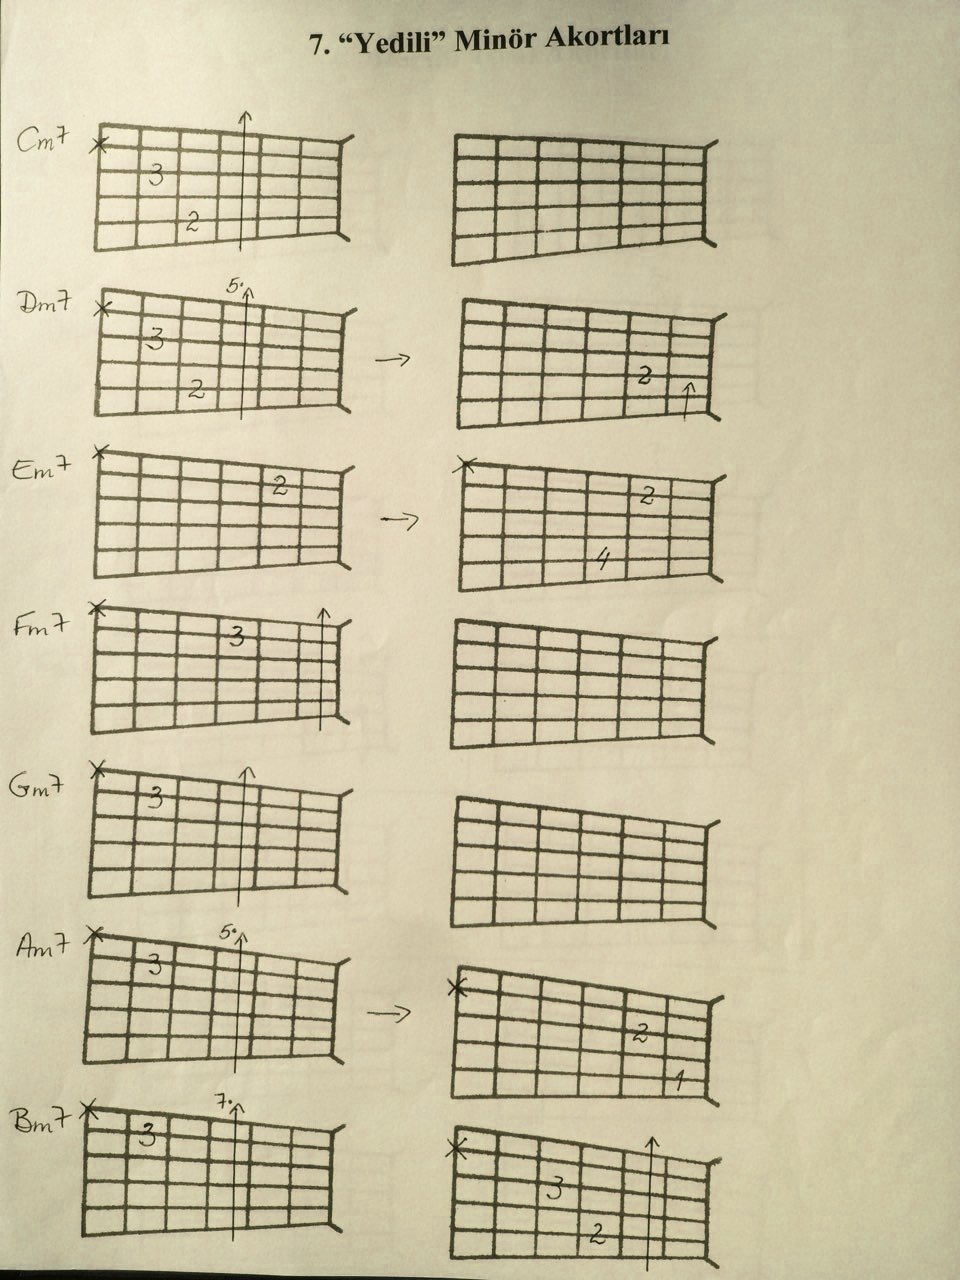 7. “Yedili” Minör Akortları
Cm7
3
2
Dm7
5.
3
2
2
Em7
2
2
4
Fm7
3
Gm7
3
Am7
5.
3
2
1
Bm7
7.
3
3
2